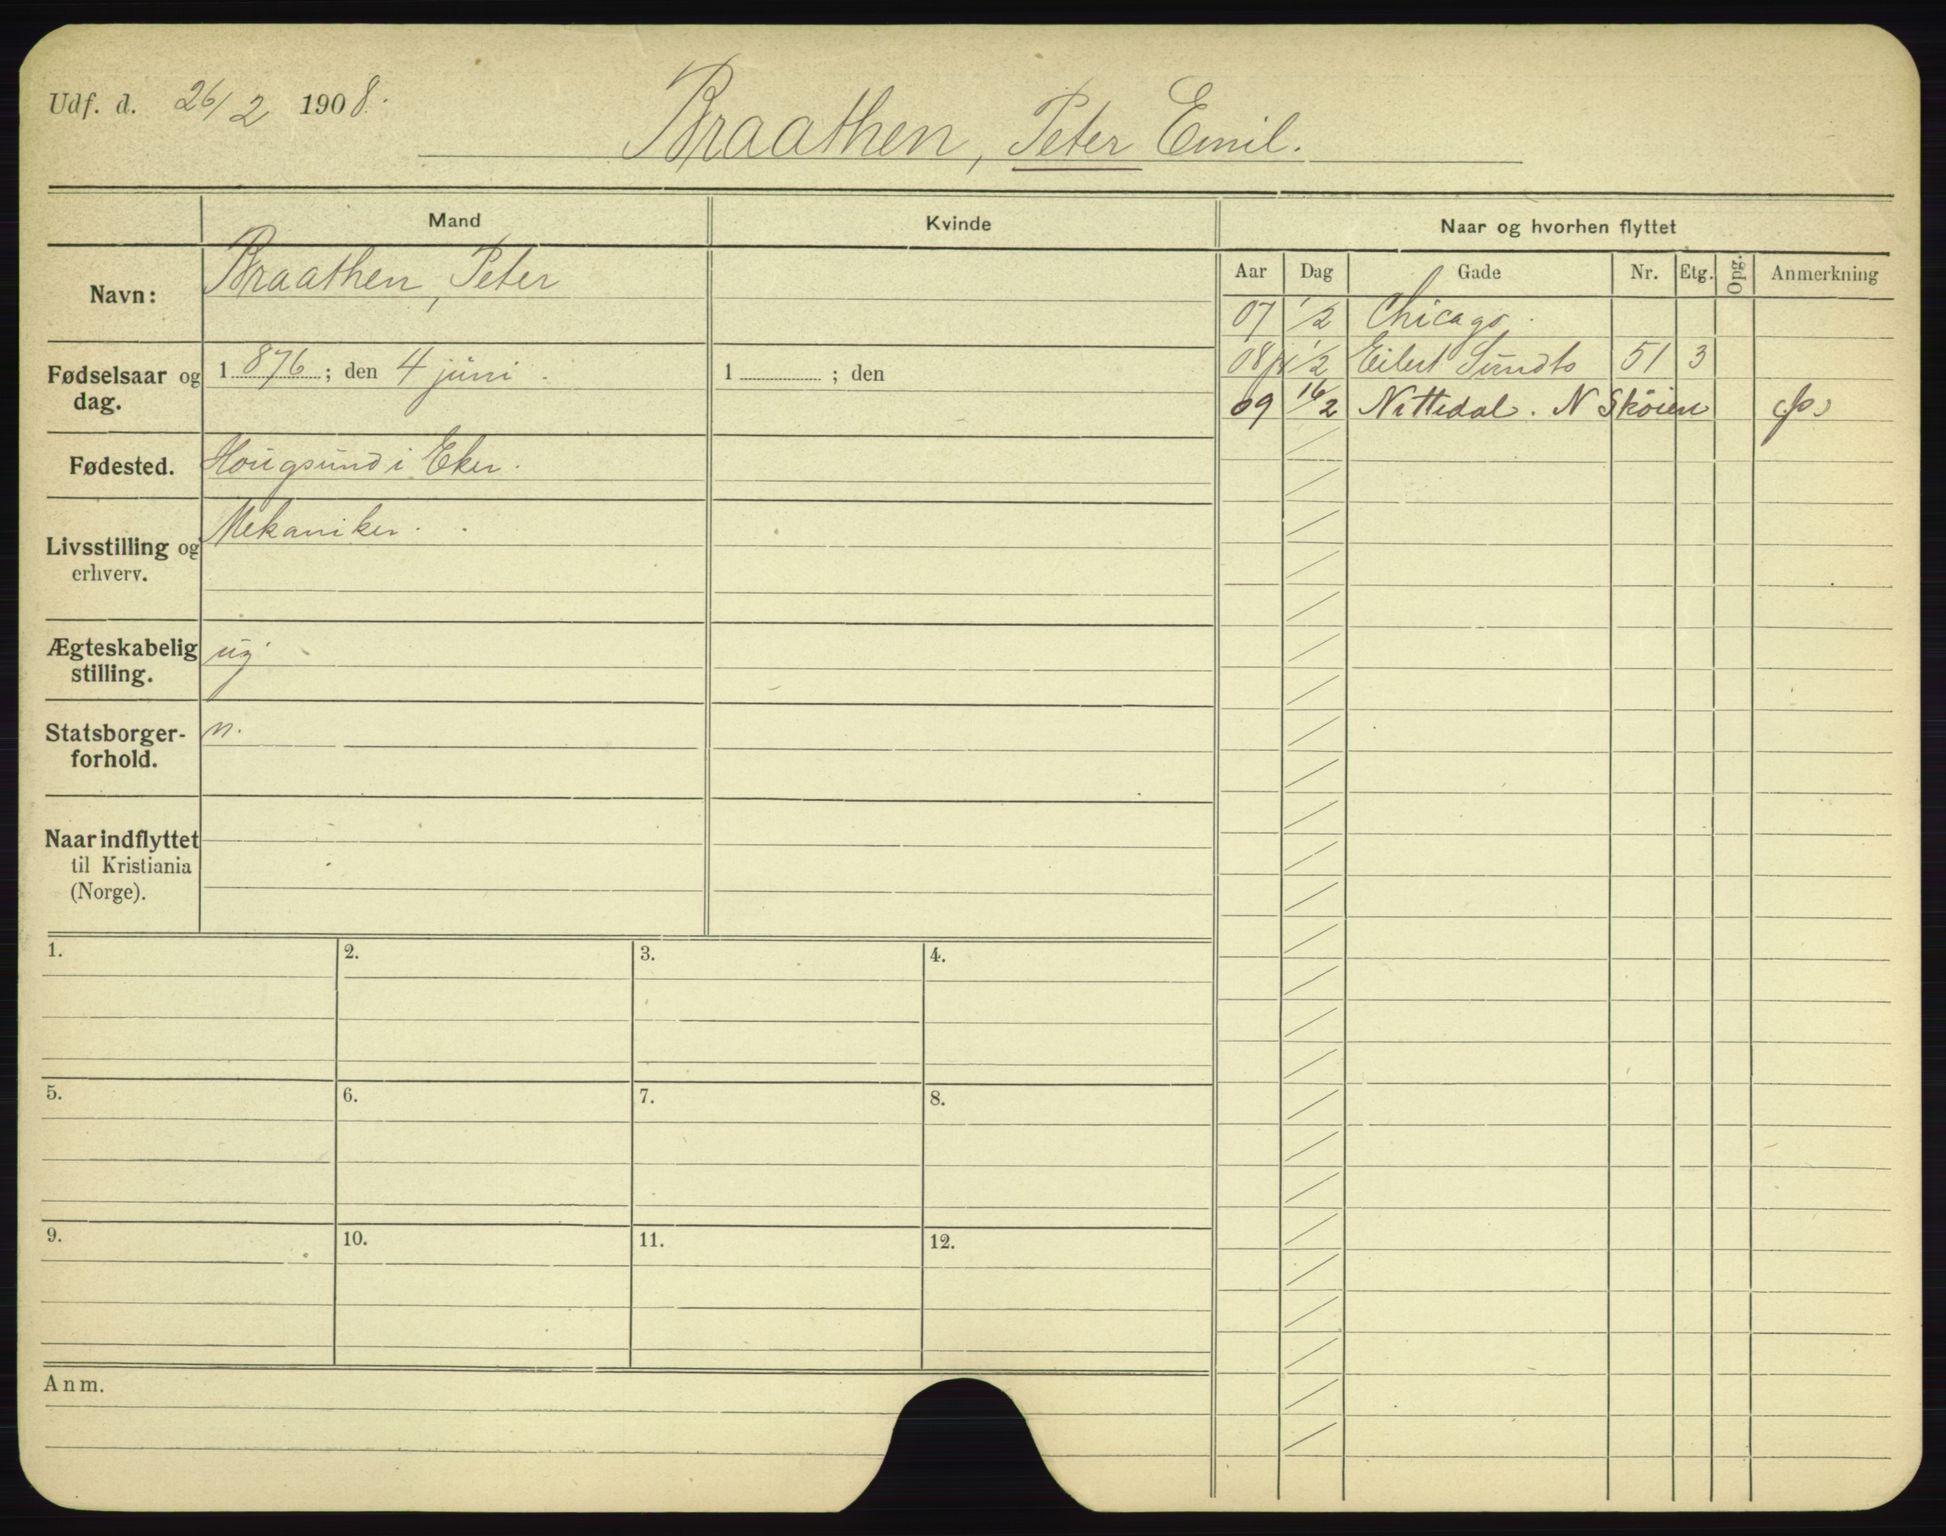 Udf. d. 26/2 1908.
Braathen, Peter Emil.
Mand
Kvinde
Naar og hvorhen flyttet
Navn:
Braathen, Peter
Fødselsaar og dag.
1876; den 4 juni.
1 ; den
Fødested.
Hougsund i Eker.
Livsstilling og
erhverv.
Mekaniker.
Ægteskabelig
stilling.
ug.
Statsborger-
forhold.
n.
Naar indflyttet
til Kristiania
(Norge).
Aar Dag Gade Nr. Etg. Opg. Anmerkning
07 1/2 Chicago.
08 1/2 Eilert Sundts 51 3
09 16/2 Nittedal. N Skøien
1. 2. 3. 4.
5. 6. 7. 8.
9. 10. 11. 12.
Anm.